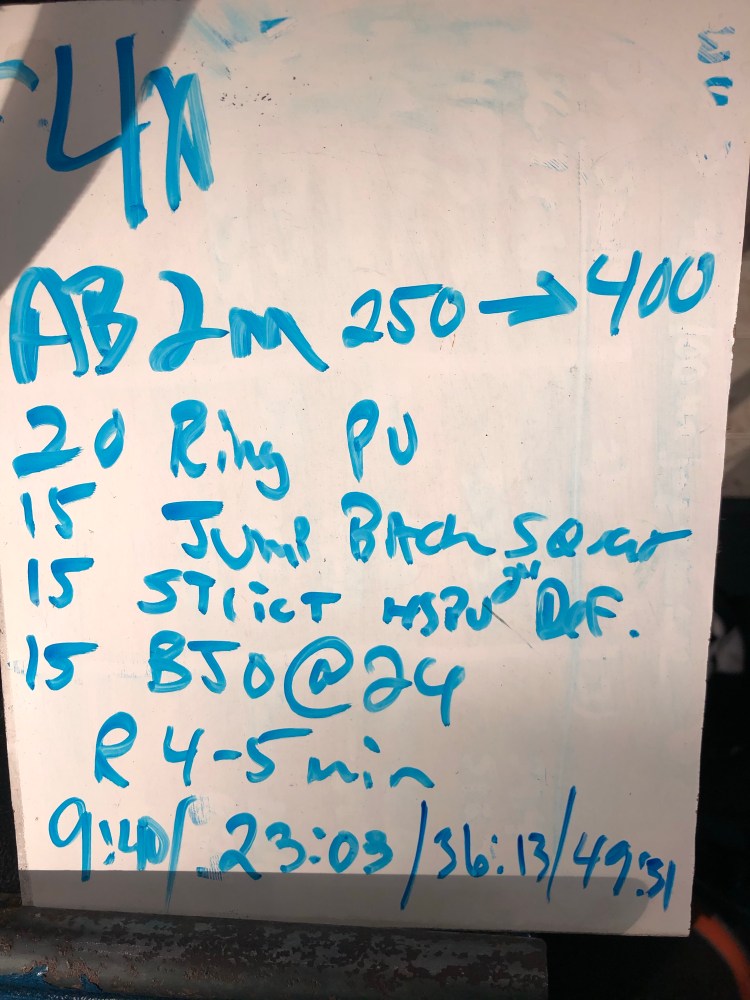 4X
AB 2m 250 → 400
20 Ring PU
15 Jump Bitch Squat
15 STRICT HSPU 2" DEF.
15 BJO @ 24
R 4-5 min
9:40 / 23:03 / 36:13 / 49:51